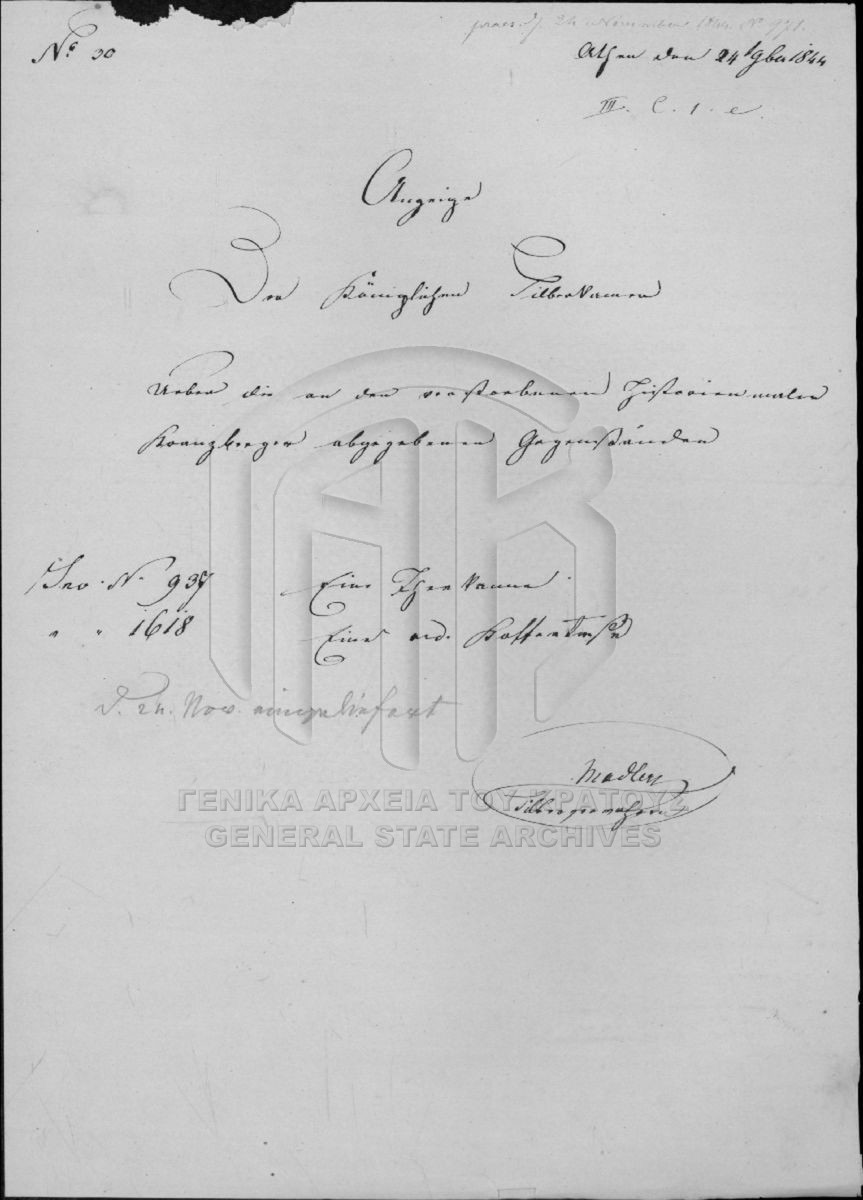 praes. d. 24 November 1844. No 971.
No 30
Athen den 24t 9ber 1844
III. C. 1. e.
Anzeige
Der Königlichen Silberkamer
Ueber die an den verstorbenen Historienmaler
Kranzberger abgegebenen Gegenständen
Inv. No 937 Eine Theekanne
" " 1618 Eine ord. Kaffeetasse
d. 24. Nov. eingeliefert
Madler
Silberbewahrer
ΓΕΝΙΚΑ ΑΡΧΕΙΑ ΤΟΥ ΚΡΑΤΟΥΣ
GENERAL STATE ARCHIVES